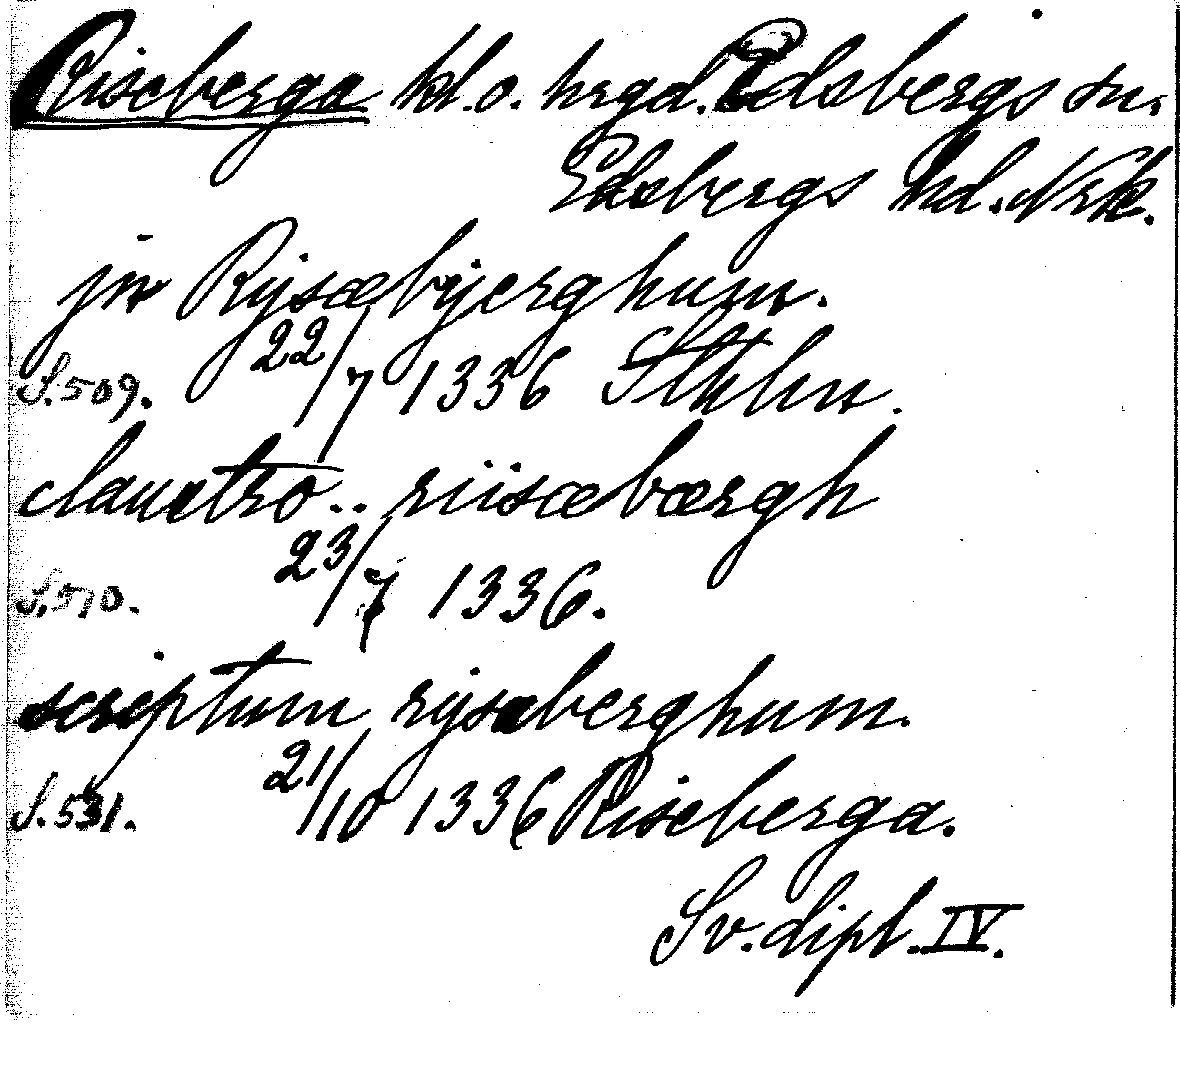 Riseberga kl. o. hrgd. Edsbergs sn.
Edsbergs hd. Nrk.
jn Ryjsæbyerghum.
S. 509. 22/7 1336 Sthlm.
claustro .. riisæbærgh
S. 510. 23/7 1336.
scriptum rysaberghum.
S. 531. 21/10 1336 Riseberga.
Sv. dipl. IV.